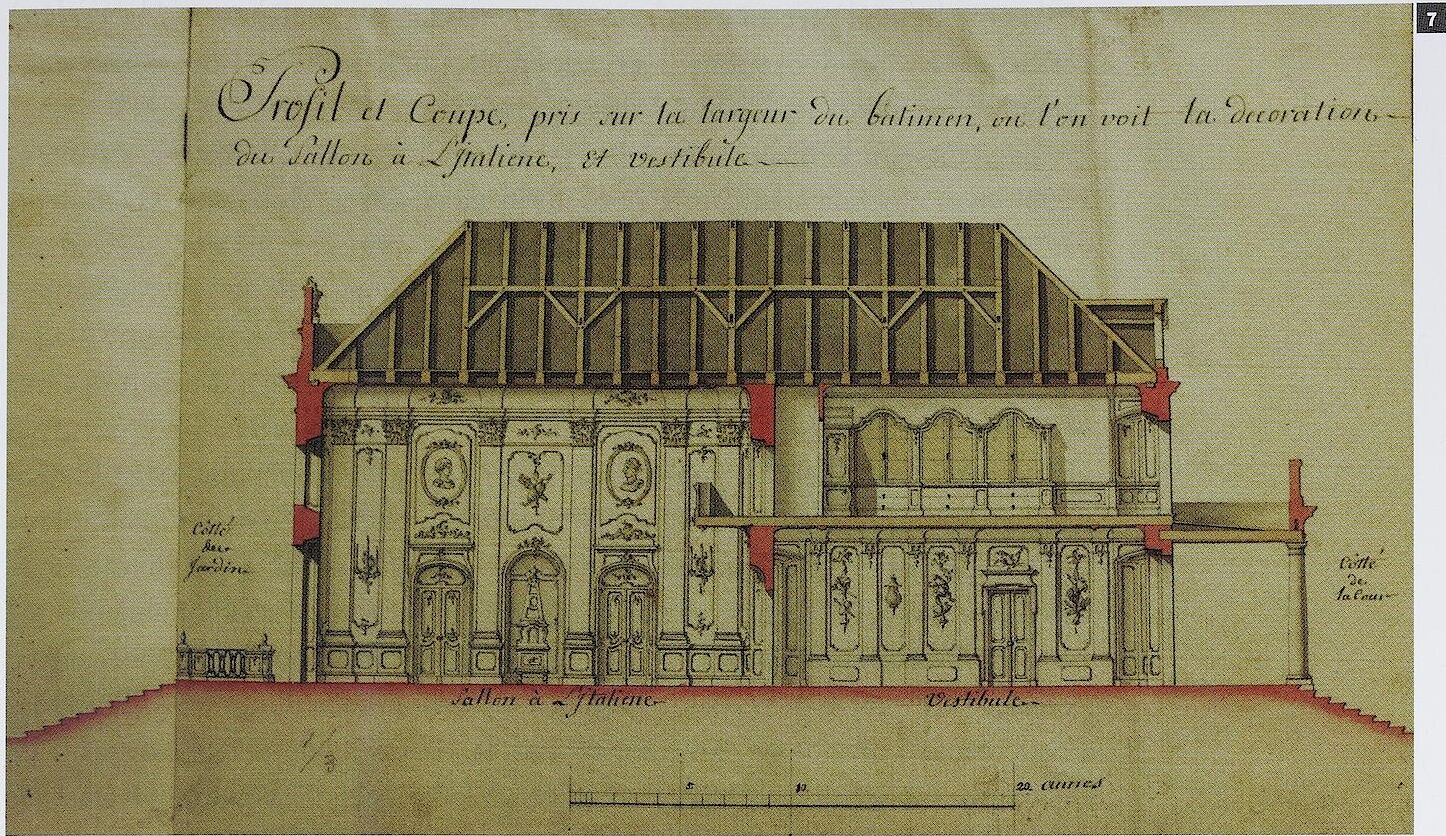 7
Profil et Coupe, pris sur la largeur du batimen, ou l'on voit la decoration
du Sallon à L'Italiene, Et Vestibule
Côtté
des
Jardin
Côtté
de
la Cour
Sallon à L'Italiene
Vestibule
5
10
20 aunes